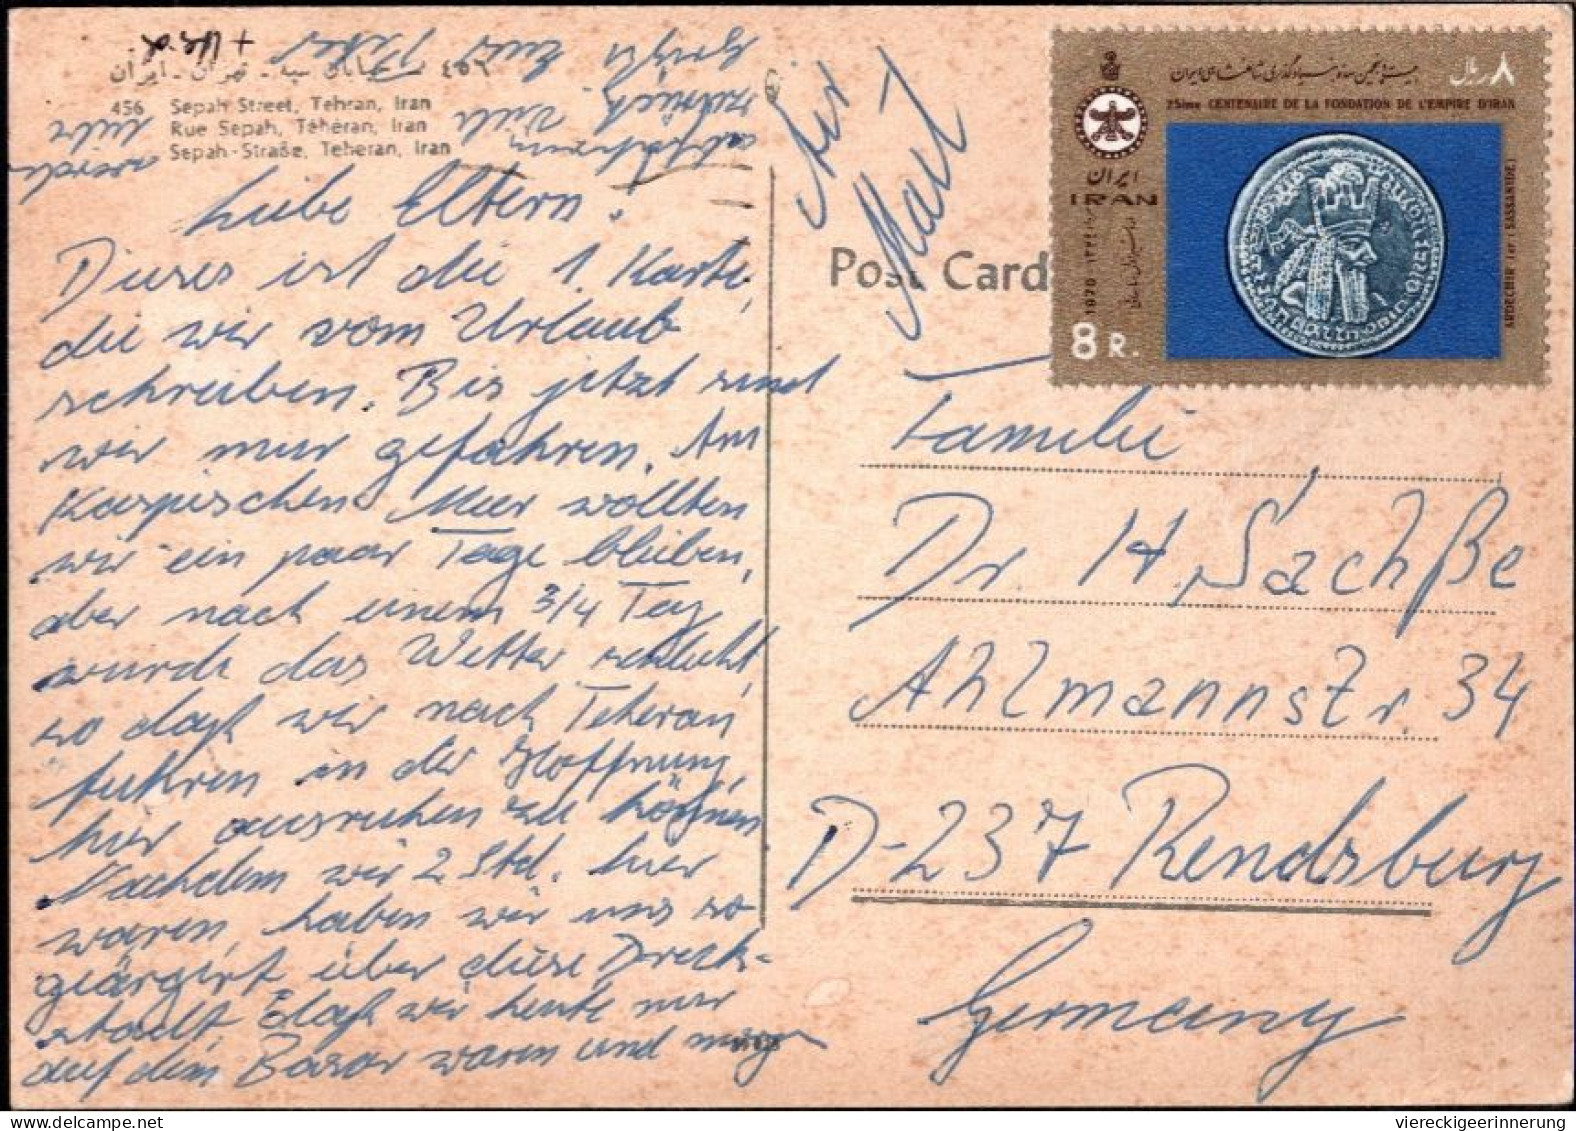 ٤٥٦ – خیابان سپه - تهران - ایران
456 Sepah Street, Tehran, Iran
Rue Sepah, Téhéran, Iran
Sepah-Straße, Teheran, Iran
Liebe Eltern.
Dieses ist die 1. Karte,
die wir vom Urlaub
schreiben. Bis jetzt sind
wir nur gefahren. Am
Kaspischen Meer wollten
wir ein paar Tage bleiben,
aber nach einem 3/4 Tag
wurde das Wetter schlecht,
so daß wir nach Teheran
fuhren in der Hoffnung,
hier ausruhen zu können.
Nachdem wir 2 Std. hier
waren, haben wir uns so
geärgert über diese Dreck-
stadt, daß wir heute nur
auf dem Basar waren und morgen
wieder
zurück
Viele
Grüße Eure Peter
+
Air
Mail
Post Card
۸ ریال
25ème CENTENAIRE DE LA FONDATION DE L'EMPIRE D'IRAN
ایران
IRAN
1970
ARDECHIR 1er (SASSANIDE)
8 R.
Familie
Dr. H. Sachße
Ahlmannstr. 34
D-237 Rendsburg
Germany
viereckigeerinnerung